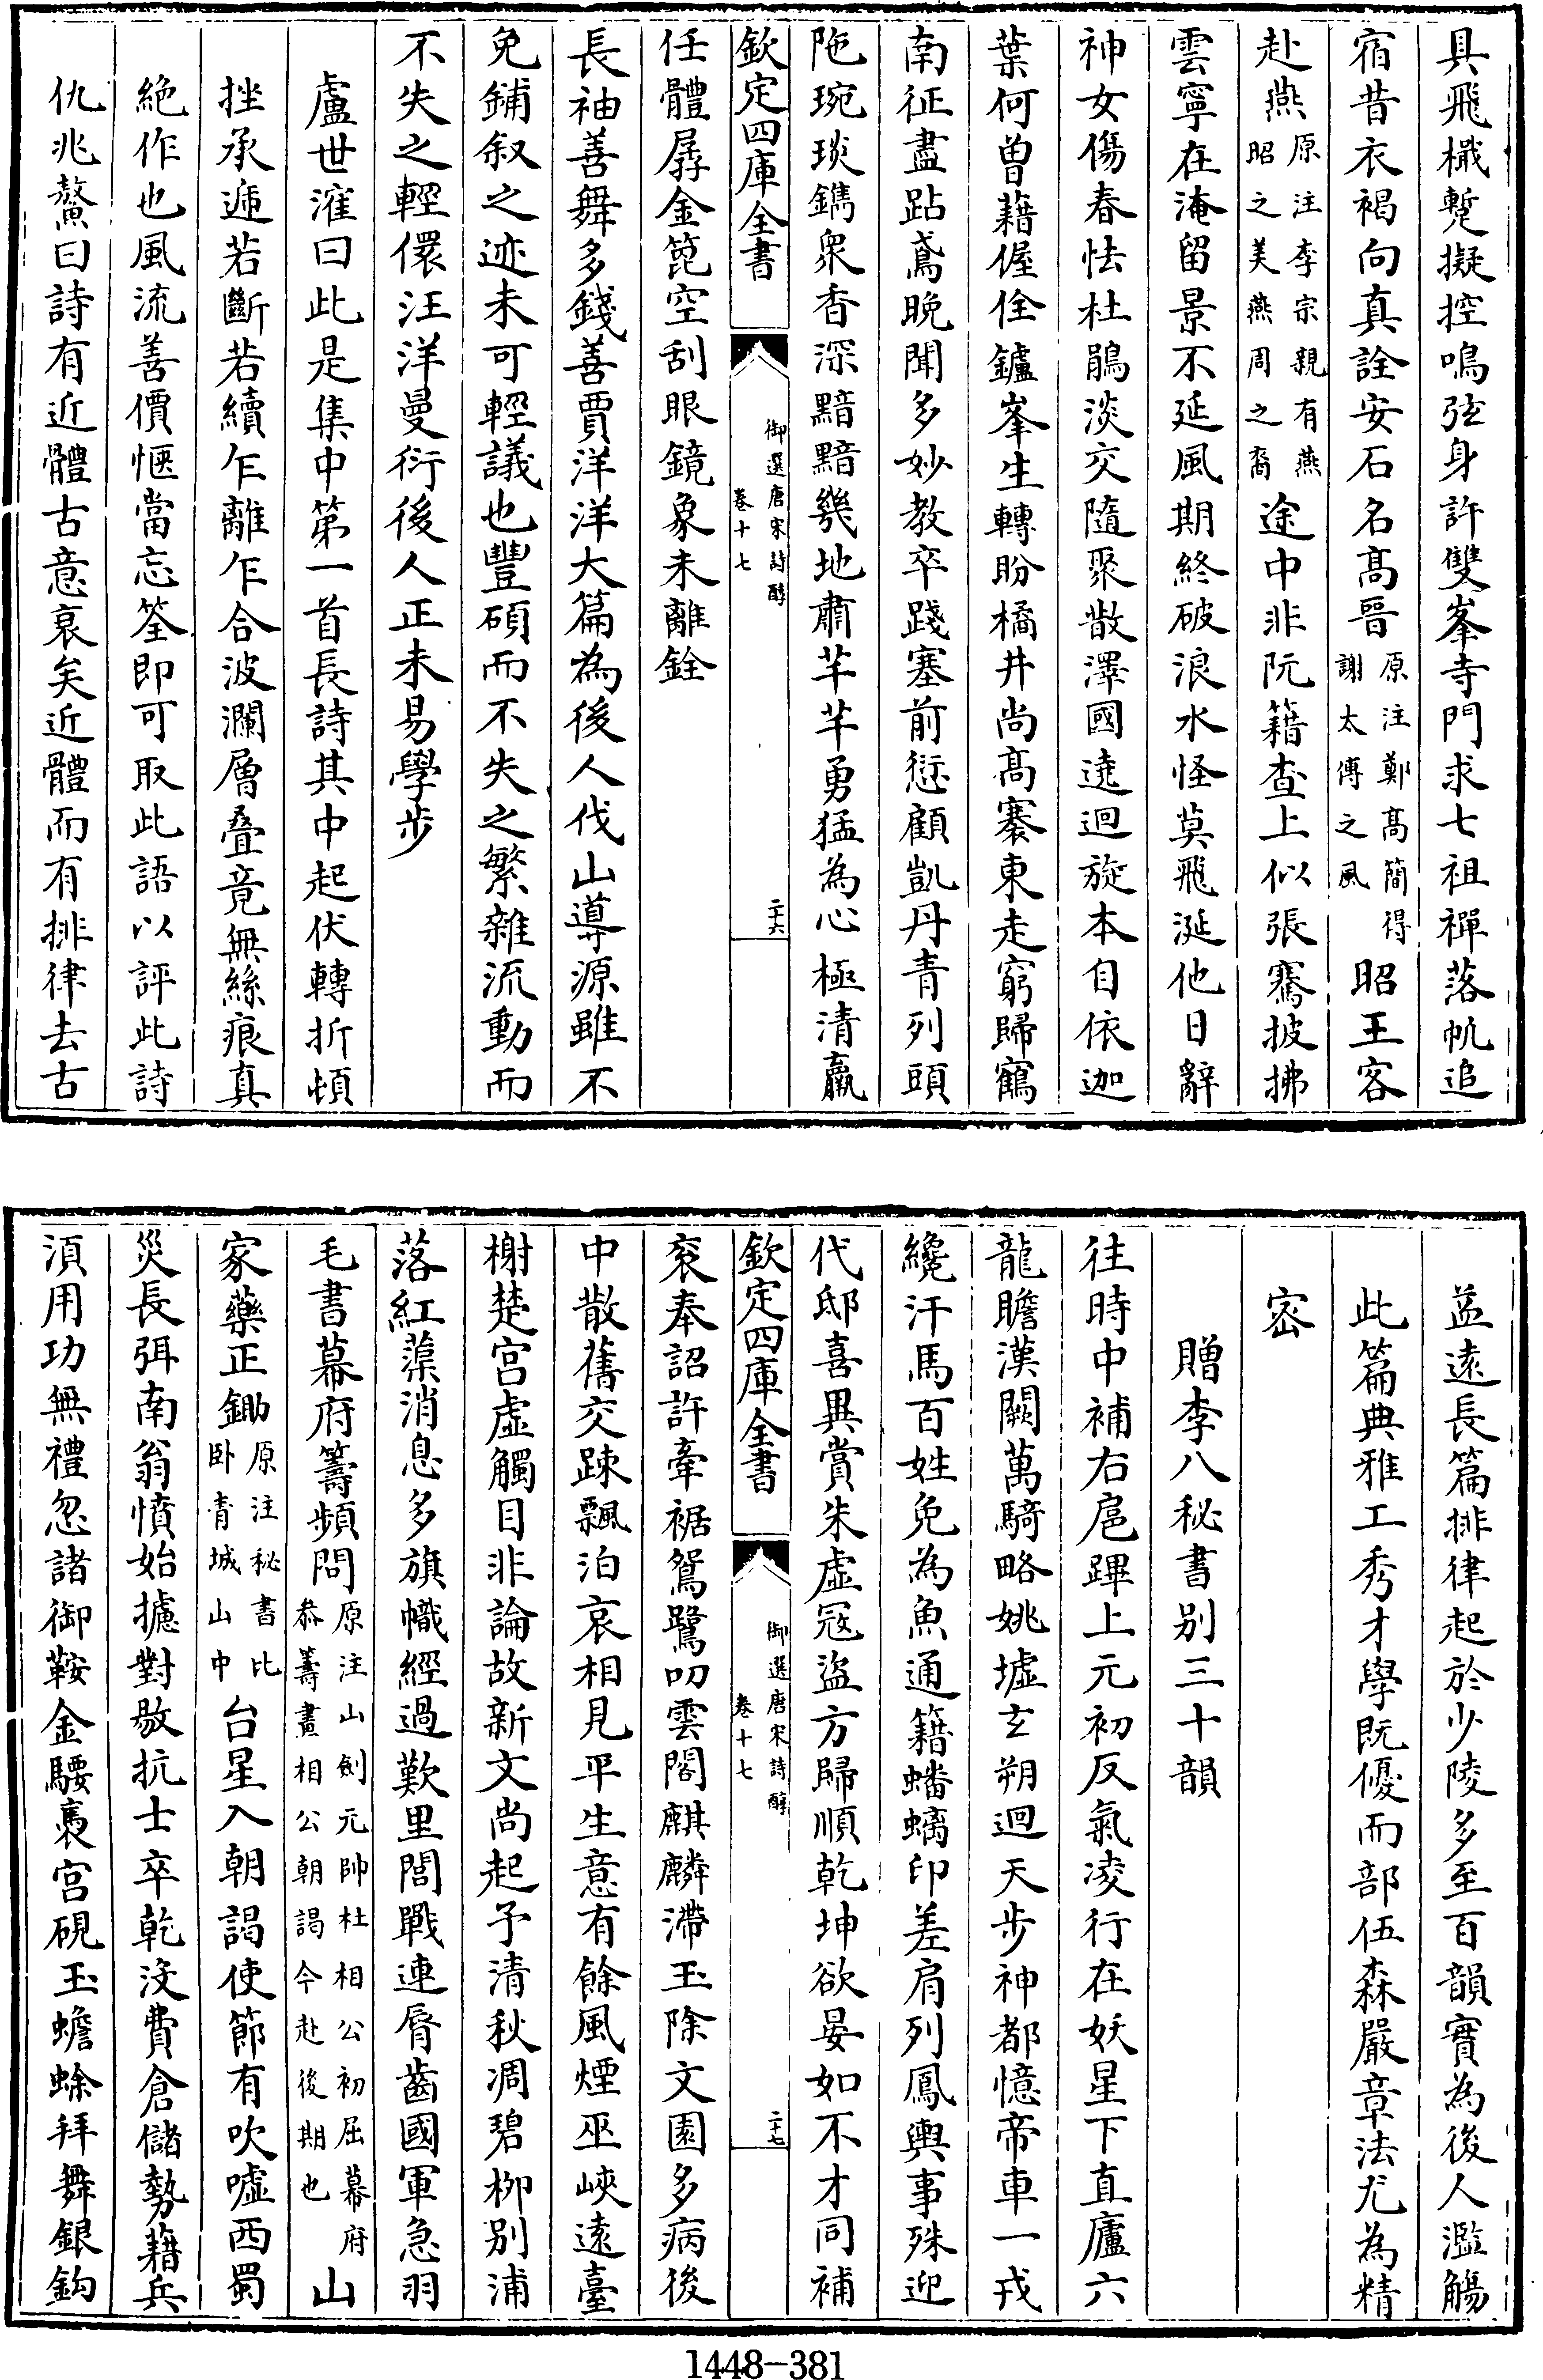 具飛檝蹔擬控鳴弦身許雙峯寺門求七祖禪落帆追
宿昔衣褐向真詮安石名髙晉原注鄭髙簡得謝太傅之風昭王客
赴燕原注李宗親有燕昭之美燕周之裔途中非阮籍查上似張騫披拂
雲寧在淹留景不延風期終破浪水怪莫飛涎他日辭
神女傷春怯杜鵑淡交隨聚散澤國遶迴旋本自依迦
葉何曾藉偓佺鑪峯生轉盼橘井尚髙褰東走窮歸鶴
南征盡跕鳶晚聞多妙教卒踐塞前愆顧凱丹青列頭
陁琬琰鐫衆香深黯黯幾地肅芊芊勇猛為心極清羸
欽定四庫全書
御選唐宋詩醇
卷十七
二十六
任體孱金篦空刮眼鏡象未離銓
長袖善舞多錢善賈洋洋大篇為後人伐山導源雖不
免鋪叙之迹未可輕議也豐碩而不失之繁雜流動而
不失之輕儇汪洋曼衍後人正未易學步
盧世㴶曰此是集中第一首長詩其中起伏轉折頓
挫承遞若斷若續乍離乍合波瀾層疊竟無絲痕真
絶作也風流善價愜當忘筌即可取此語以評此詩
仇兆鰲曰詩有近體古意衰矣近體而有排律去古
益遠長篇排律起於少陵多至百韻實為後人濫觴
此篇典雅工秀才學旣優而部伍森嚴章法尤為精
宻
贈李八秘書别三十韻
往時中補右扈蹕上元初反氣凌行在妖星下直廬六
龍瞻漢闕萬騎略姚墟玄朔迴天步神都憶帝車一戎
纔汗馬百姓免為魚通籍蟠螭印差肩列鳳輿事殊迎
代邸喜異賞朱虛冦盜方歸順乾坤欲晏如不才同補
欽定四庫全書
御選唐宋詩醇
卷十七
二十七
衮奉詔許牽裾鴛鷺叨雲閣麒麟滯玉除文園多病後
中散舊交踈飄泊哀相見平生意有餘風煙巫峽遠臺
榭楚宫虛觸目非論故新文尚起予清秋凋碧柳别浦
落紅蕖消息多旗幟經過歎里閭戰連脣齒國軍急羽
毛書幕府籌頻問原注山劍元帥杜相公初屈幕府叅籌畫相公朝謁今赴後期也山
家藥正鋤原注秘書比卧青城山中台星入朝謁使節有吹噓西蜀
災長弭南翁憤始攄對敭抗士卒乾没費倉儲勢藉兵
湏用功無禮忽諸御鞍金騕褭宫硯玉蟾蜍拜舞銀鈎
1448-381